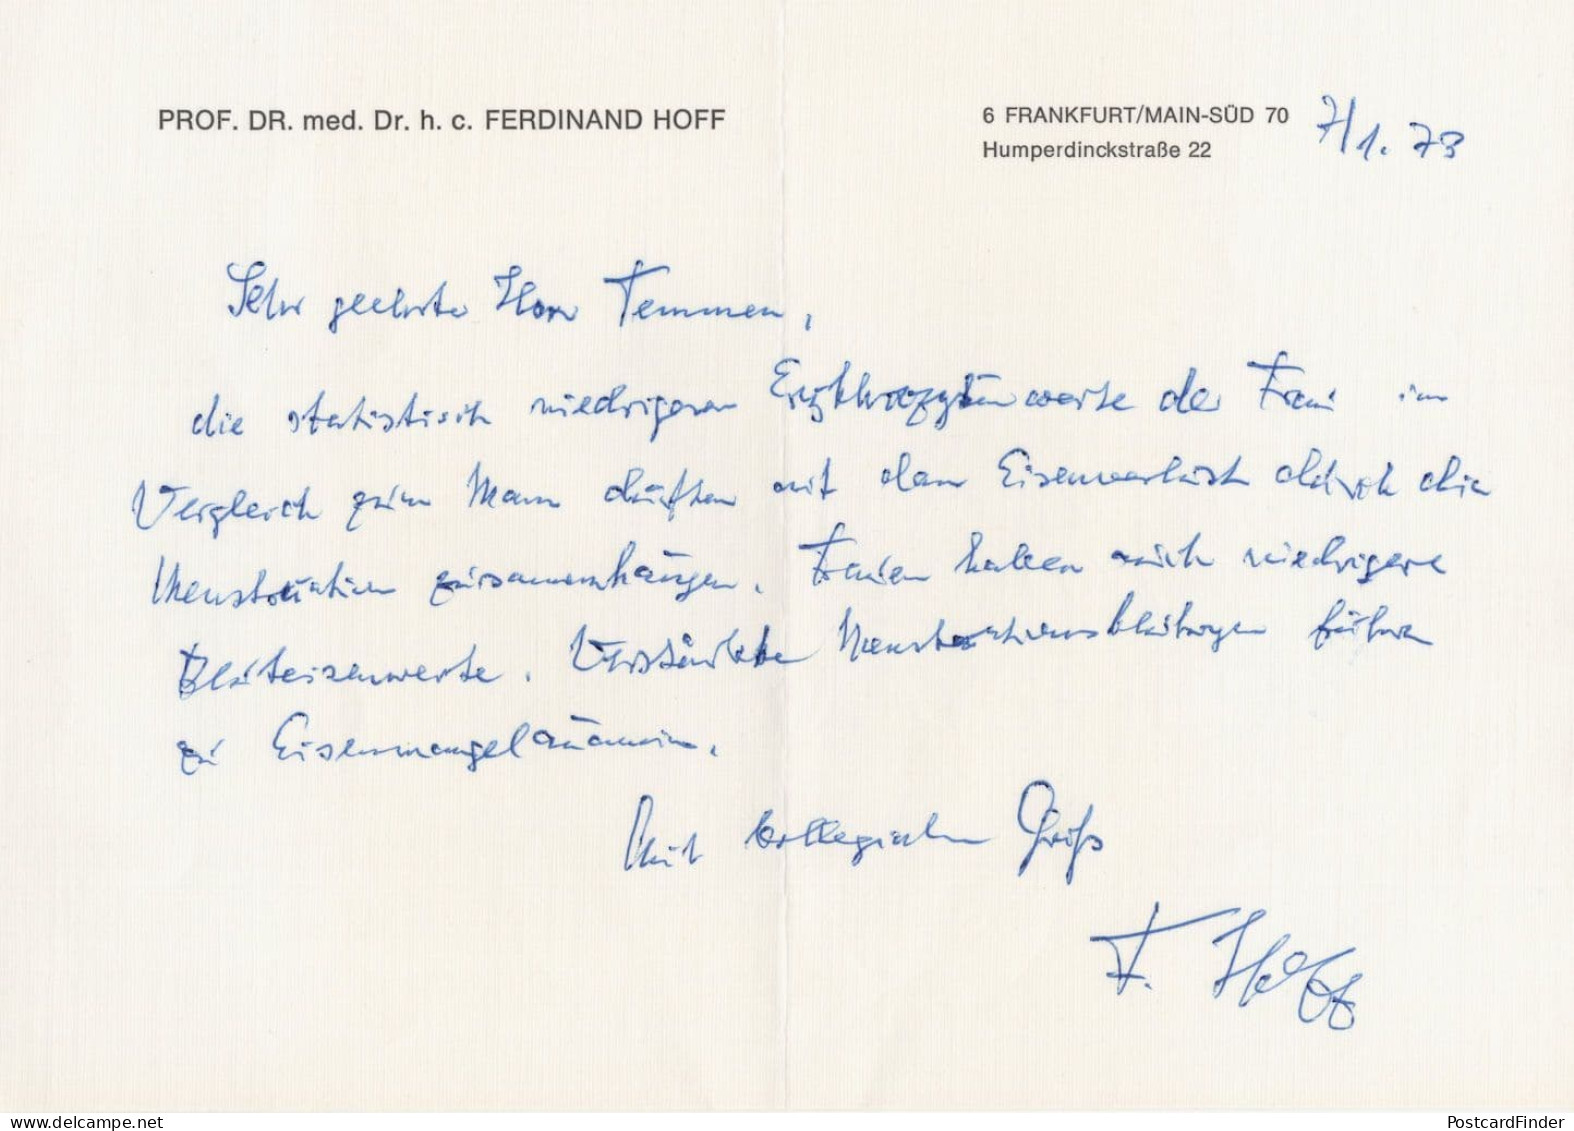 PROF. DR. med. Dr. h. c. FERDINAND HOFF
6 FRANKFURT/MAIN-SÜD 70
Humperdinckstraße 22
7/1. 73
Sehr geehrter Herr Temmen,
die statistisch niedrigeren Erythrozytenwerte der Frau im
Vergleich zum Mann dürften mit dem Eisenverlust durch die
Menstruation zusammenhängen. Frauen haben auch niedrigere
Bluteisenwerte. Verstärkte Menstruationsblutungen führen
zu Eisenmangelanämien.
Mit kollegialem Gruß
F. Hoff
PostcardFinder